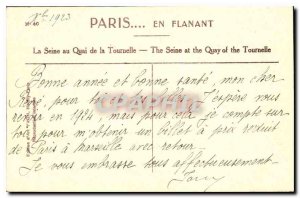 Xbre 1923
PARIS.... EN FLANANT
La Seine au Quai de la Tournelle — The Seine at the Quay of the Tournelle
Bonne année et bonne santé, mon cher
René, pour toi J'espère vous
revoir en 1924, mais pour cela je compte sur
toi pour m'obtenir un billet à prix réduit
de Paris à Marseille avec retour.
Je vous embrasse tous affectueusement